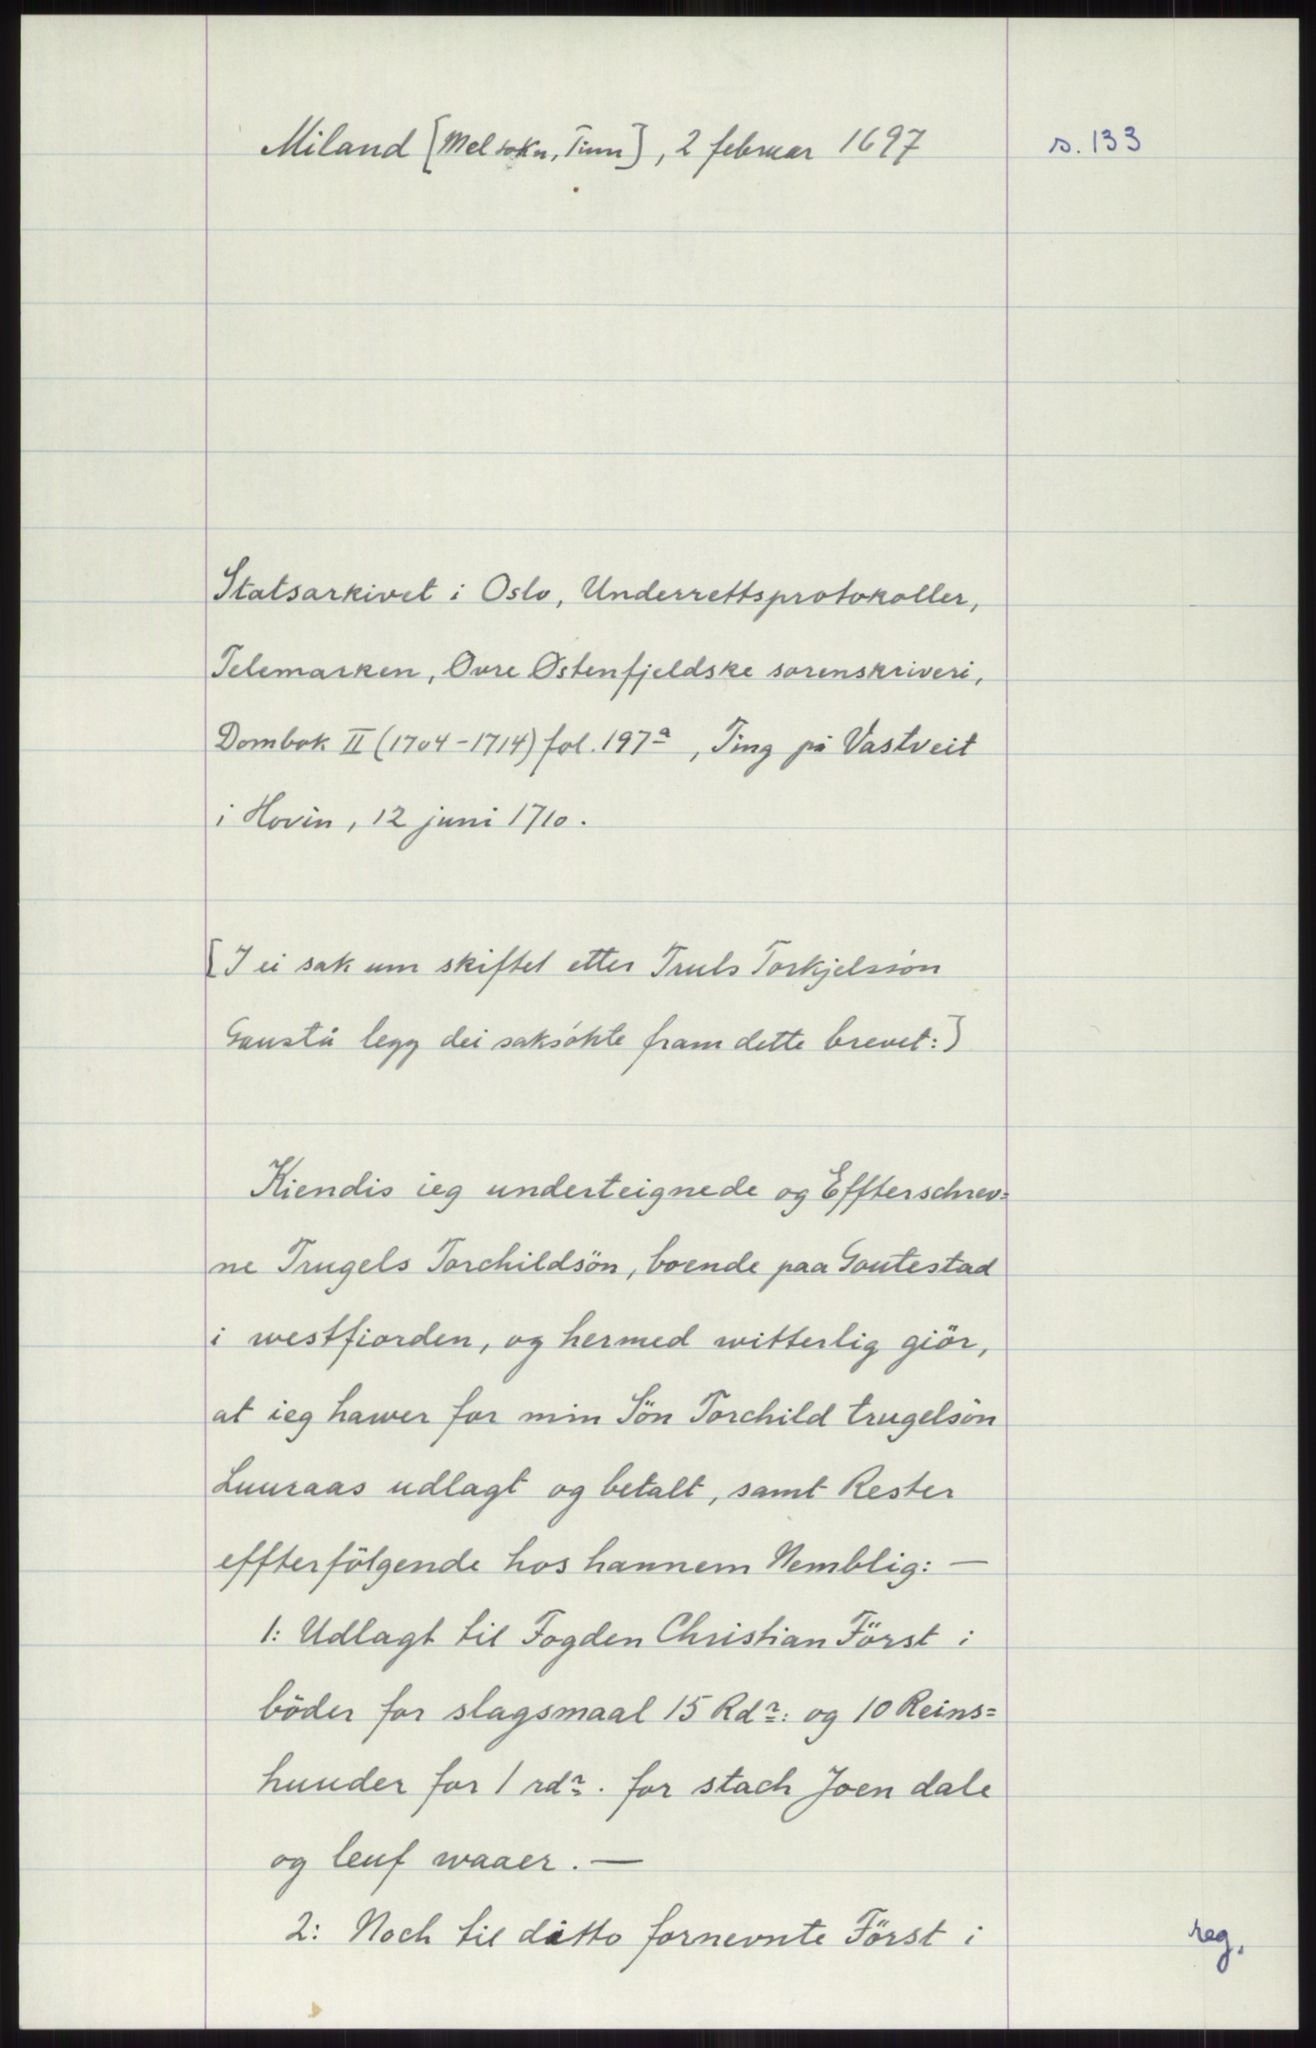 Miland [Mel sokn, Tinn], 2 februar 1697
s. 133
Statsarkivet i Oslo, Underrettsprotokoller,
Telemarken, Øvre Østenfjeldske sorenskriveri,
Dombok II (1704-1714) fol. 197a, Ting på Vastveit
i Hovin, 12 juni 1710.
[I ei sak um skiftet etter Truls Torkjelssøn
Gaustå legg dei saksøkte fram dette brevet:]
Kiendis ieg underteignede og Effterschrev=
ne Trugels Torchildsön, boende paa Goutestad
i westfiorden, og hermed witterlig giör,
at ieg hawer for min Sön Torchild trugelsön
Luuraas udlagt og betalt, samt Rester
effterfölgende hos hannem Nemblig: —
1: Udlagt til Fogden Christian Först i
böder for slagsmaal 15 Rdr: og 10 Reins=
huuder for 1 rdr. for stach Joen dale
og leuf waaer. —
2: Noch til ditto fornevnte Först i
reg.